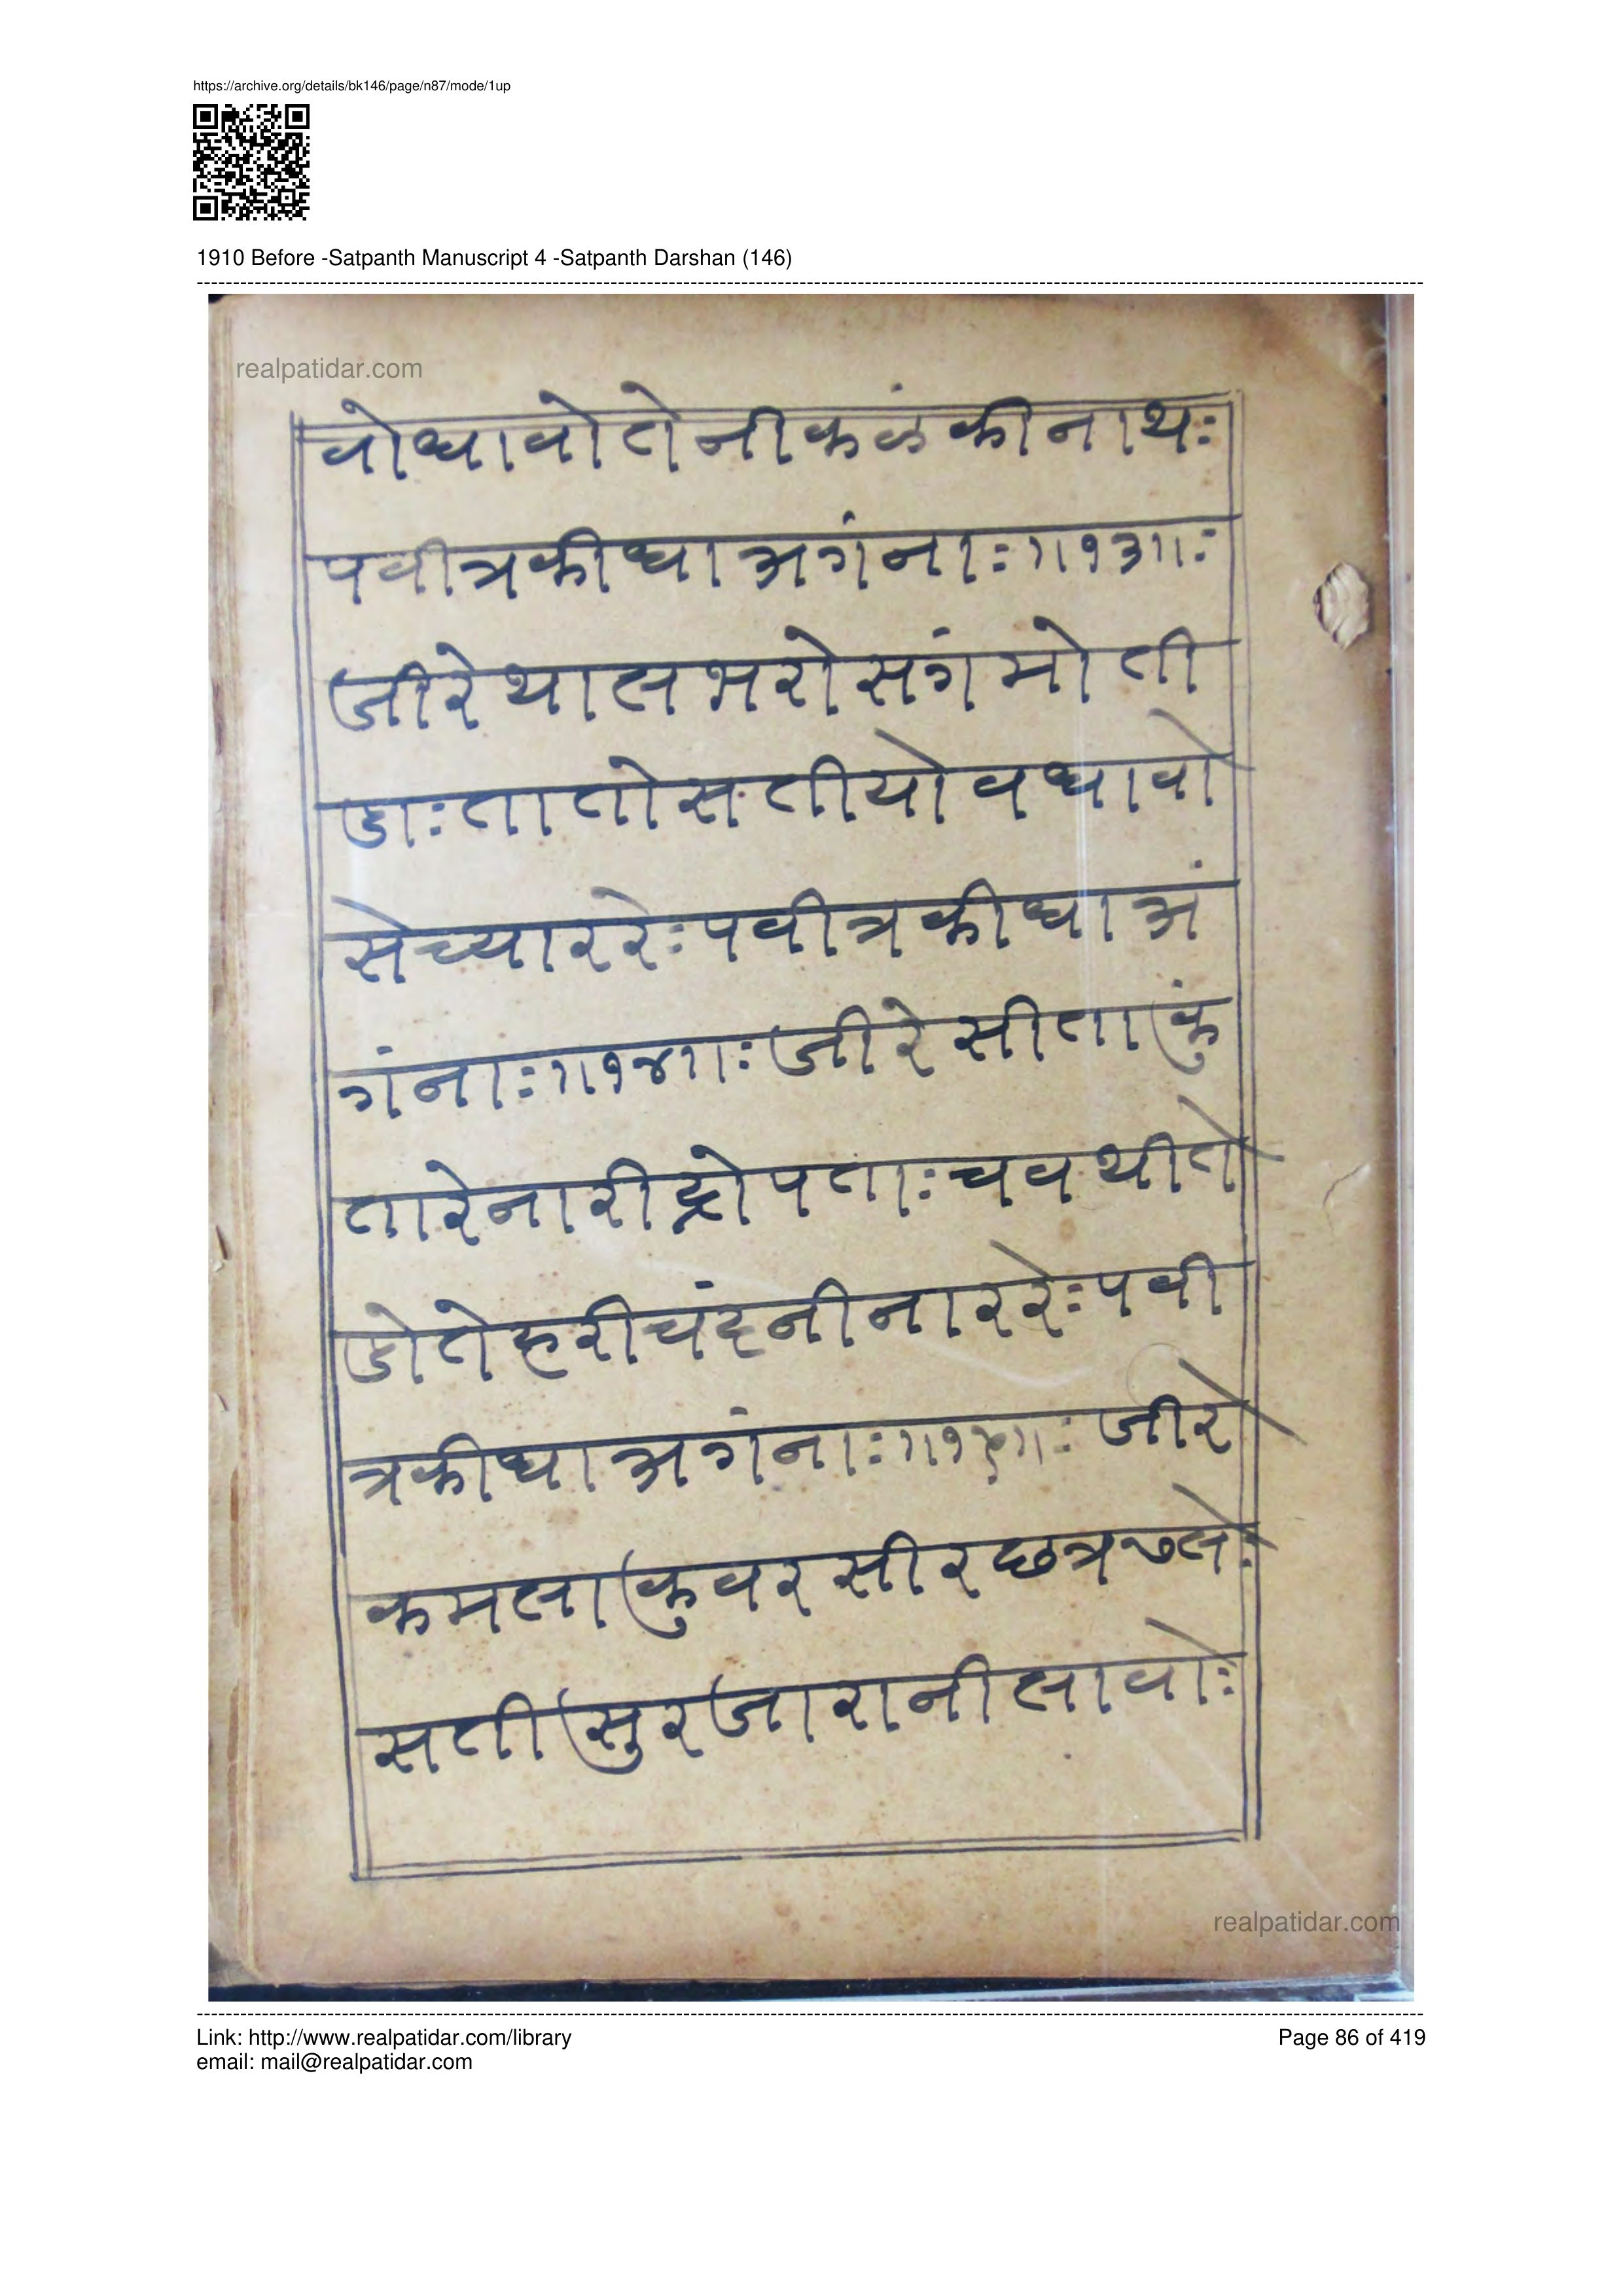 https://archive.org/details/bk146/page/n87/mode/1up
1910 Before -Satpanth Manuscript 4 -Satpanth Darshan (146)
realpatidar.com
वोधावोतेनीकळंकीनाथः
पवीत्रकीधाअगंनाः॥१३॥ः
जीरेथालभरोसगंमोती
डाःतातोसतीयोवधावो
सेच्याररेःपवीत्रकीधाअं
गंनाः॥१४॥ःजीरेसीताकुं
तारेनारीद्रोपताःचवथीते
डोतेहरीचंदनीनाररेःपवी
त्रकीधाअगंनाः॥१५॥ःजीरे
कमलाकुवरसीरछत्रढलेः
सतीसुरजारानीलावोः
realpatidar.com
Link: http://www.realpatidar.com/library
email: mail@realpatidar.com
Page 86 of 419